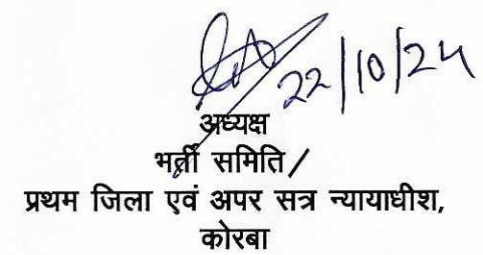 22/10/24
अध्यक्ष
भर्ती समिति/
प्रथम जिला एवं अपर सत्र न्यायाधीश,
कोरबा